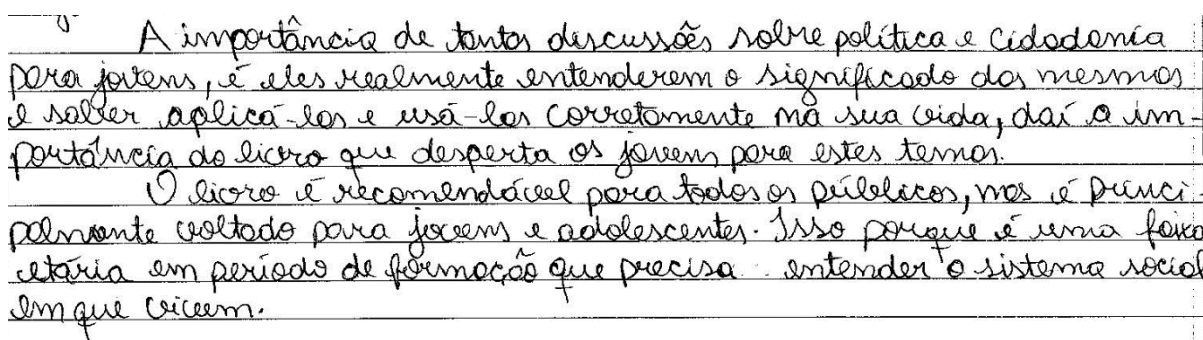 A importância de tantas discussões sobre política e cidadania
para jovens, é eles realmente entenderem o significado das mesmas
e saber aplicá-las e usá-las corretamente na sua vida, daí a im-
portância do livro que desperta os jovens para estes temas.
O livro é recomendável para todos os públicos, mas é princi-
palmente voltado para jovens e adolescentes. Isso porque é uma faixa
etária em período de formação que precisa entender o sistema social
em que vivem.